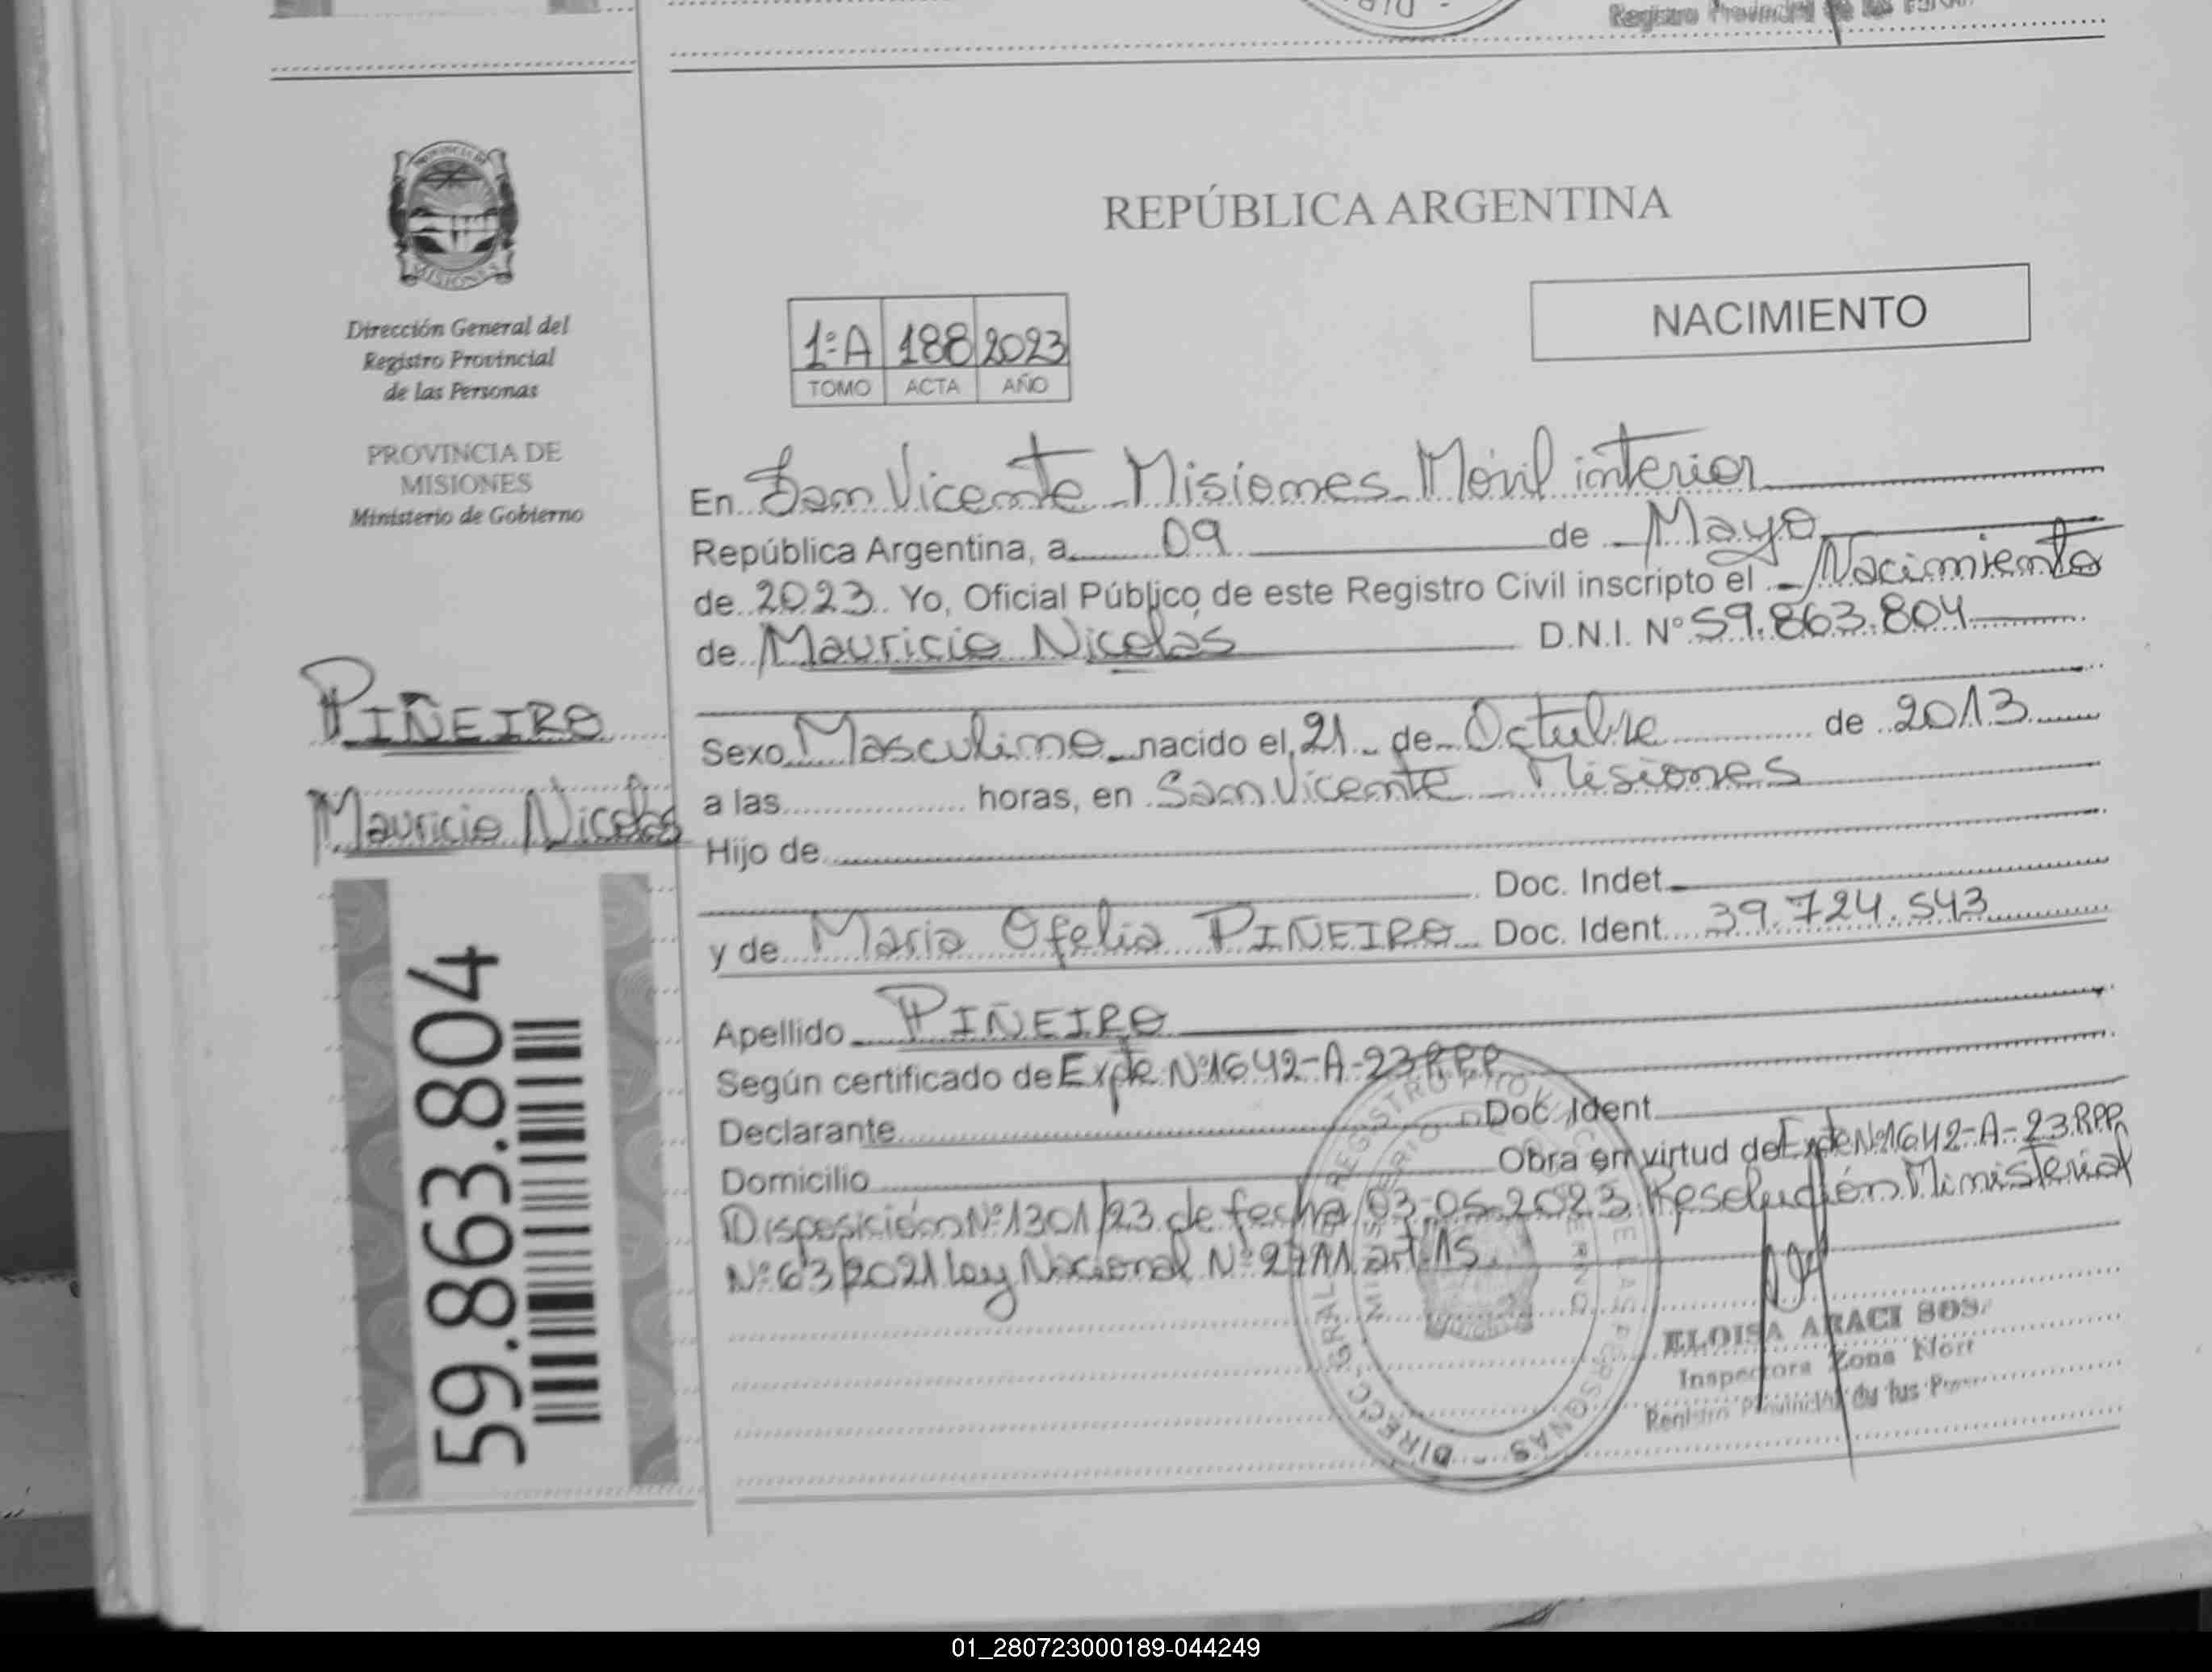 Registro Provincial de las
REPÚBLICA ARGENTINA
NACIMIENTO
1ºA 188 2023
TOMO ACTA AÑO
PROVINCIA DE
MISIONES
Dirección General del
Registro Provincial
de las Personas
PROVINCIA DE
MISIONES
Ministerio de Gobierno
PIÑEIRO
Mauricio Nicolás
59.863.804
En San Vicente Misiones Móvil interior
República Argentina, a 09 de Mayo
de 2023 Yo, Oficial Público de este Registro Civil inscripto el Nacimiento
de Mauricio Nicolás D.N.I. Nº 59.863.804
Sexo Masculino nacido el 21 de Octubre de 2013
a las horas, en San Vicente Misiones
Hijo de
Doc. Indet
y de Maria Ofelia PIÑEIRO Doc. Ident. 39.724.543
Apellido PIÑEIRO
Según certificado de Expte Nº1642-A-23 RPP
Declarante Doc. Ident
Domicilio Obra en virtud de Expte Nº1642-A-23.RPP,
Disposición Nº1301/23 de fecha 03-05-2023 Resolución Ministerial
Nº63/2021 Ley Nacional Nº art. 15.
DIRECC. GRAL. DE REGISTRO DE LAS PERSONAS
ELOISA ARACI
Inspectora Zona
Registro Provincial de las
01_280723000189-044249